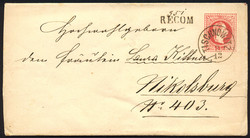 RECOM
Hochwohlgeboren
dem Fräulein Laura Kittner
Nikolsburg
Nr. 403.